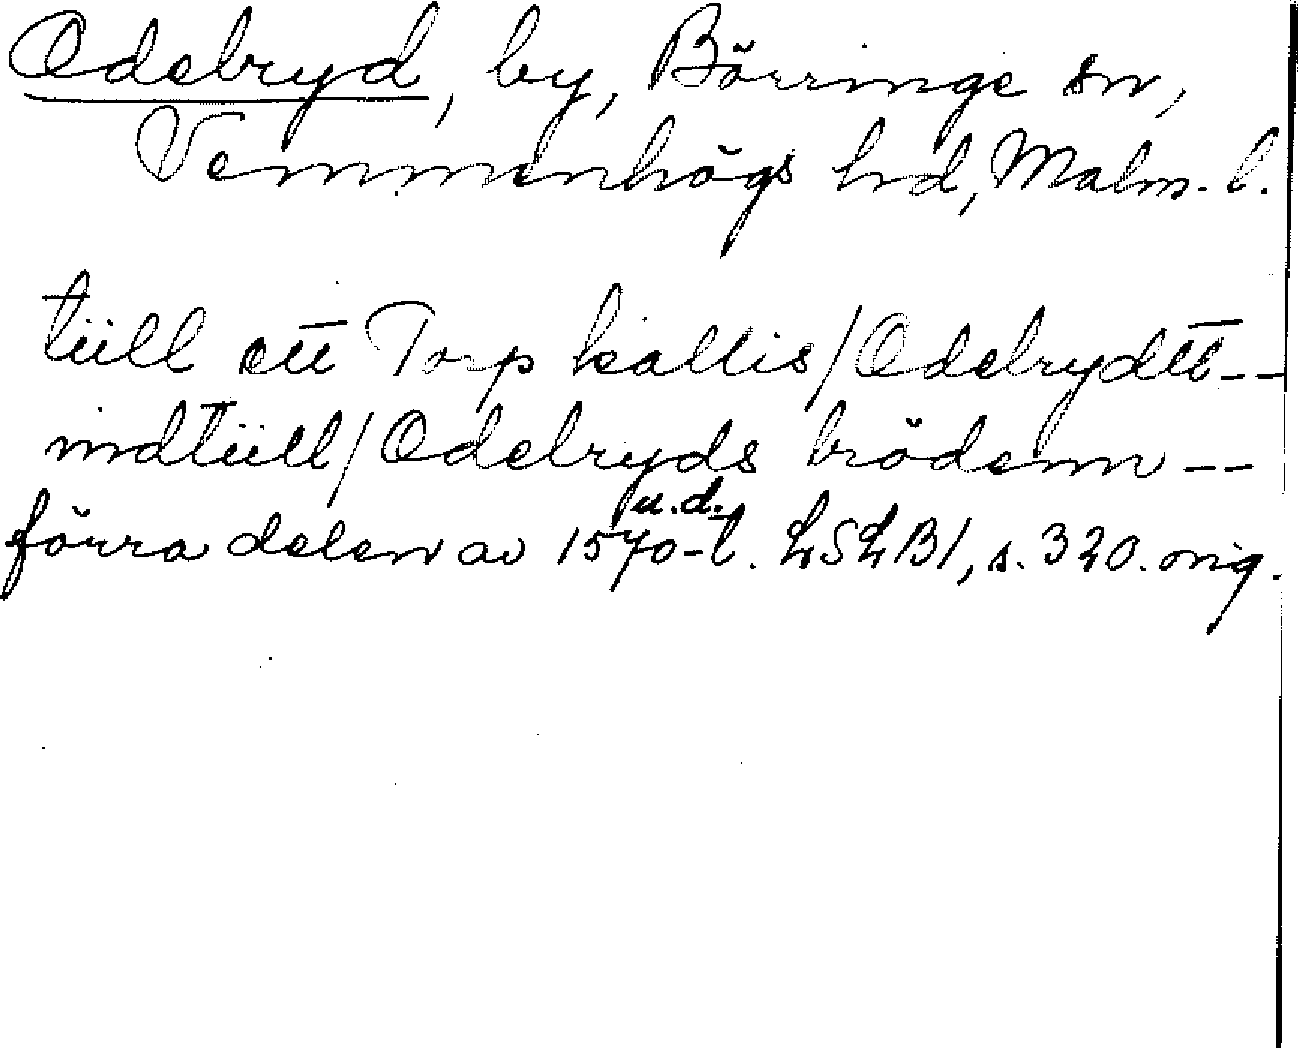 Odebryd, by, Börringe sn,
Vemmenhögs hrd, Malm. l.
tiill ett Torp kallis/Odebrydtt--
indtiill/Odebryds brödenn--
u.d.
förra delen av 1570-t. LSLB1, s. 320. orig.